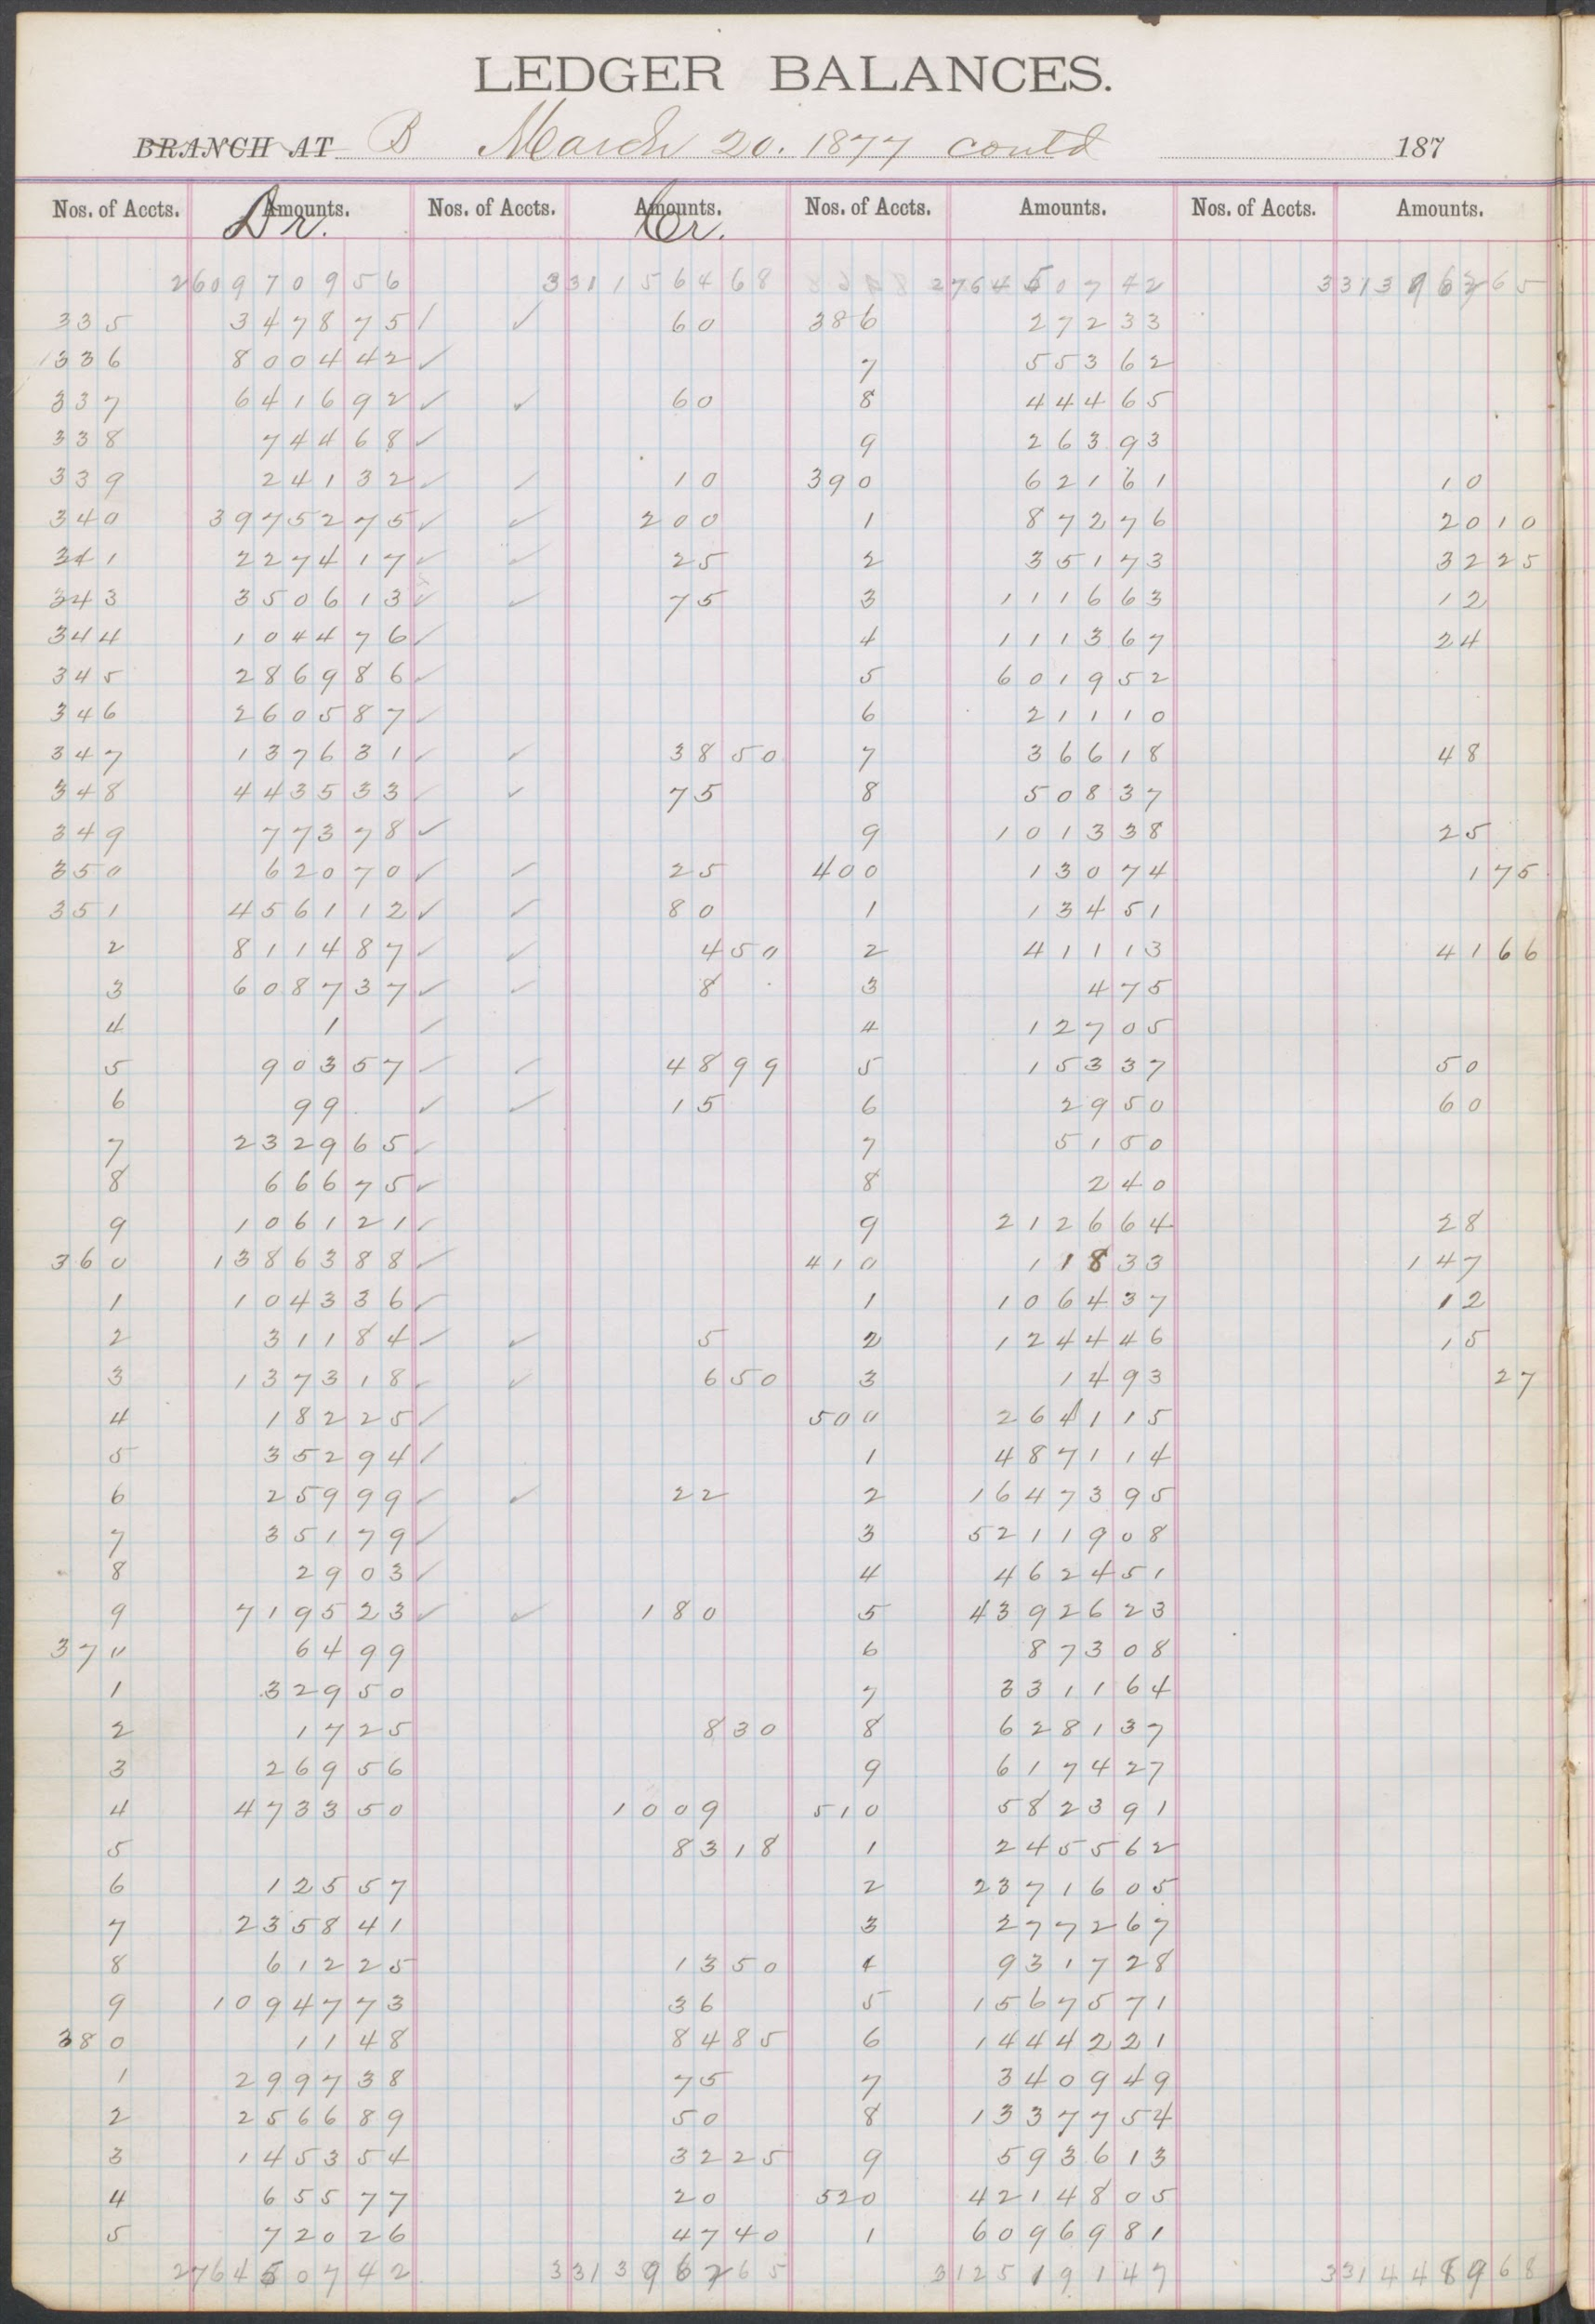 LEDGER BALANCES.
BRANCH AT B March 20. 1877 contd 187
Nos. of Accts. Amounts. Nos. of Accts. Amounts. Nos. of Accts. Amounts. Nos. of Accts. Amounts.
Dr. Cr.
260970956 331156468 276450742
335 347875 ✓ ✓ 60 386 27233
336 800442 ✓ 7 55362
337 641692 ✓ ✓ 60 8 44465
338 74468 ✓ 9 26393
339 24132 ✓ ✓ 10 390 62161 10
340 3975275 ✓ ✓ 200 1 87276 2010
341 227417 ✓ ✓ 25 2 35173 3225
343 350613 ✓ ✓ 75 3 111663 12
344 104476 ✓ 4 111367 24
345 286986 ✓ 5 601952
346 260587 ✓ 6 21110
347 137631 ✓ ✓ 3850 7 36618 48
348 443533 ✓ ✓ 75 8 50837
349 77378 ✓ 9 101338 25
350 62070 ✓ ✓ 25 400 13074 175
351 456112 ✓ ✓ 80 1 13451
2 811487 ✓ ✓ 450 2 41113 4166
3 608737 ✓ ✓ 8 3 475
4 1 ✓ 4 12705
5 90357 ✓ ✓ 4899 5 15337 50
6 99 ✓ ✓ 15 6 2950 60
7 232965 ✓ 7 5150
8 66675 ✓ 8 240
9 106121 ✓ 9 212664 28
360 1386388 ✓ 410 11833 147
1 104336 ✓ 1 106437 12
2 31184 ✓ ✓ 5 2 124446 15
3 137318 ✓ ✓ 650 3 1493 27
4 18225 ✓ 500 264115
5 35294 ✓ 1 487114
6 25999 ✓ ✓ 22 2 1647395
7 35179 ✓ 3 5211908
8 2903 ✓ 4 462451
9 719523 ✓ ✓ 180 5 4392623
370 6499 6 87308
1 32950 7 331164
2 1725 830 8 628137
3 26956 9 617427
4 473350 1009 510 582391
5 8318 1 245562
6 12557 2 2371605
7 235841 3 277267
8 61225 1350 4 931728
9 1094773 36 5 1567571
380 1148 8485 6 1444221
1 299738 75 7 340949
2 256689 50 8 1337754
3 145354 3225 9 593613
4 65577 20 520 4214805
5 72026 4740 1 6096981
276450742 312519147 331448968